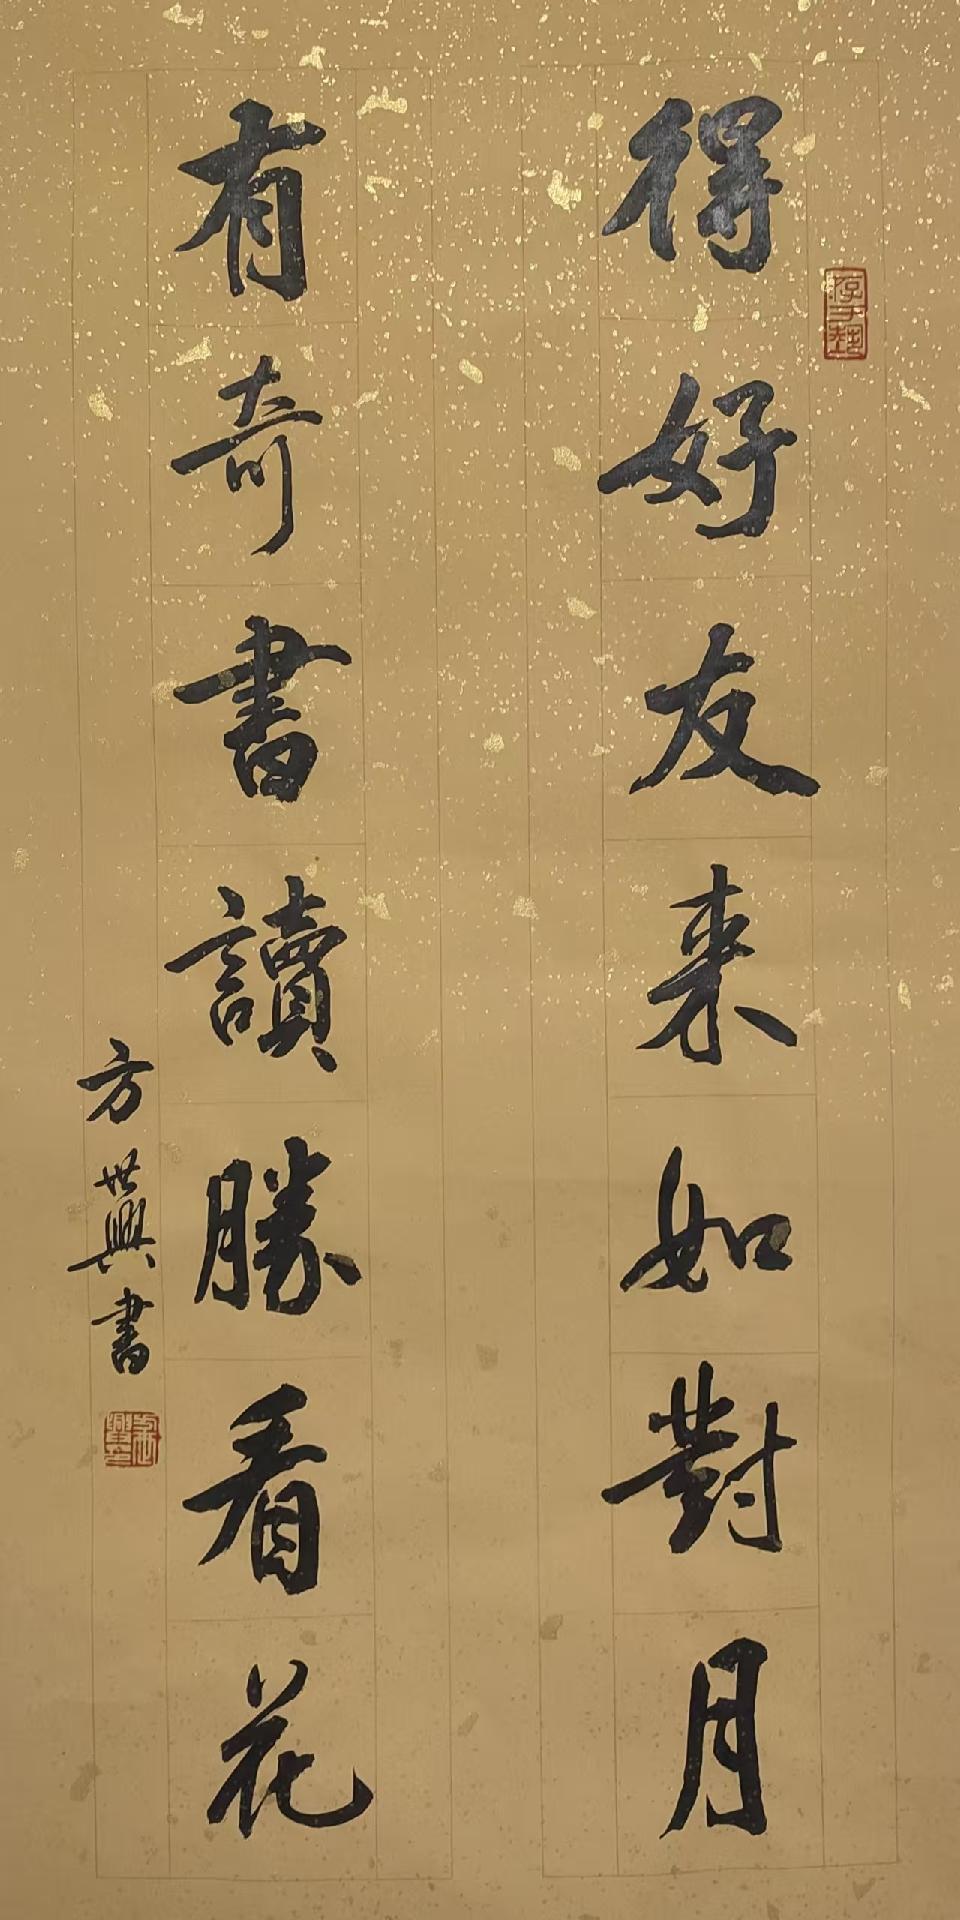 得好友来如對月
有奇書讀勝看花
方世興書
游于藝